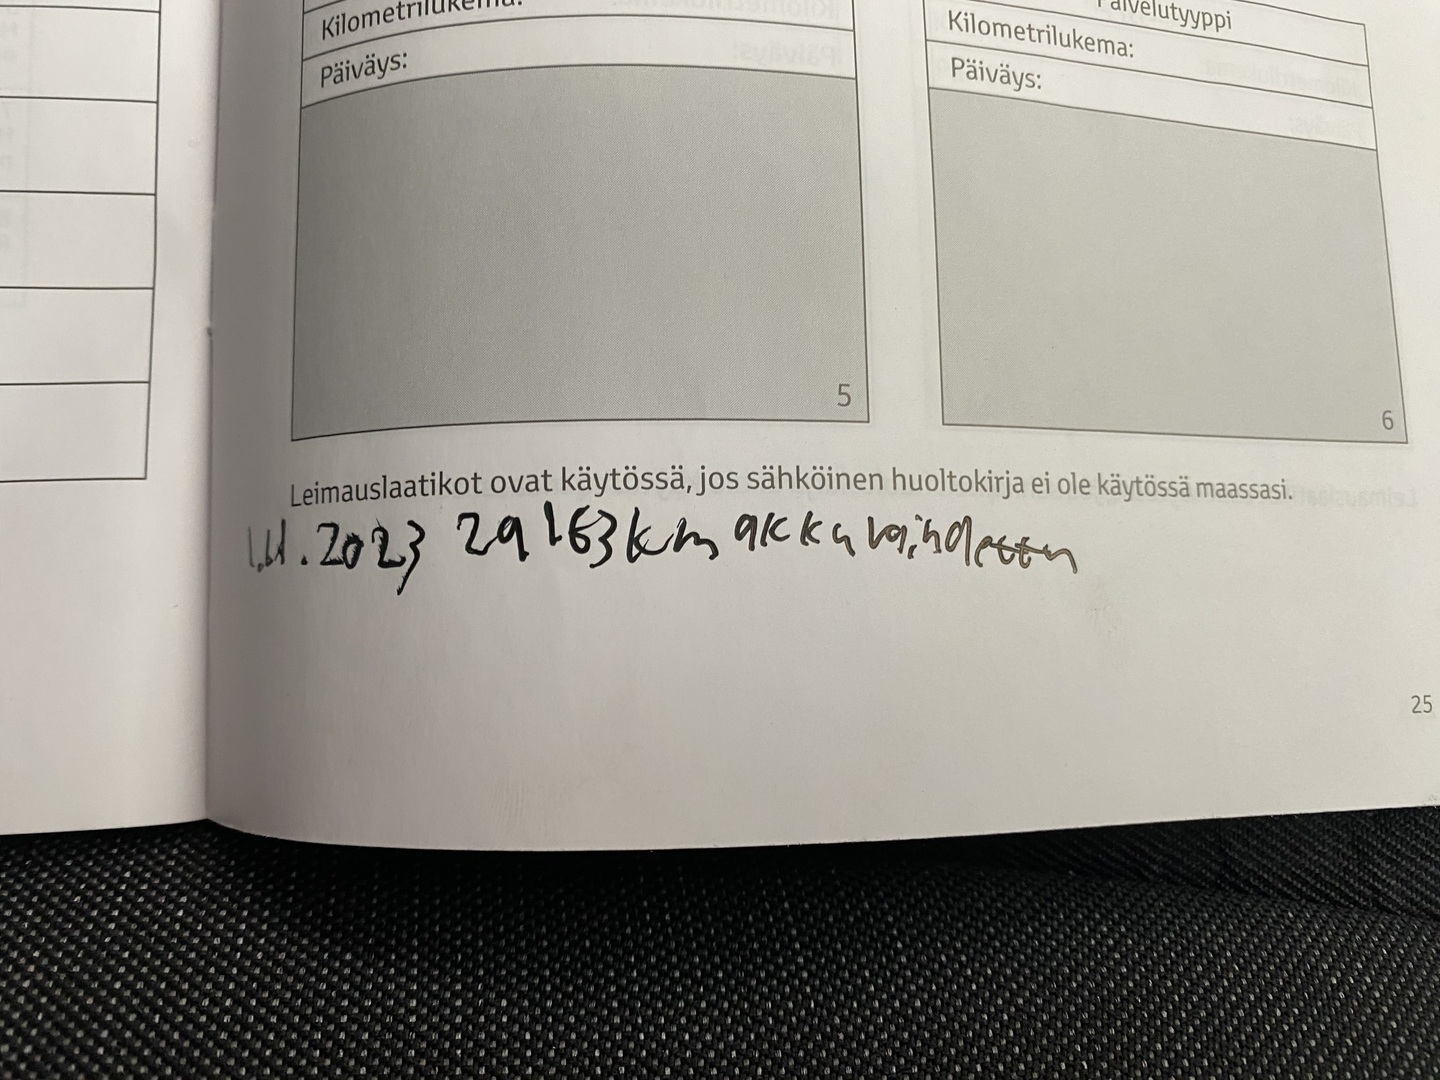 Kilometrilukema:
Päiväys:
5
Palvelutyyppi
Kilometrilukema:
Päiväys:
6
Leimauslaatikot ovat käytössä, jos sähköinen huoltokirja ei ole käytössä maassasi.
1.11.2023 29163 km akku vaihdettu
25